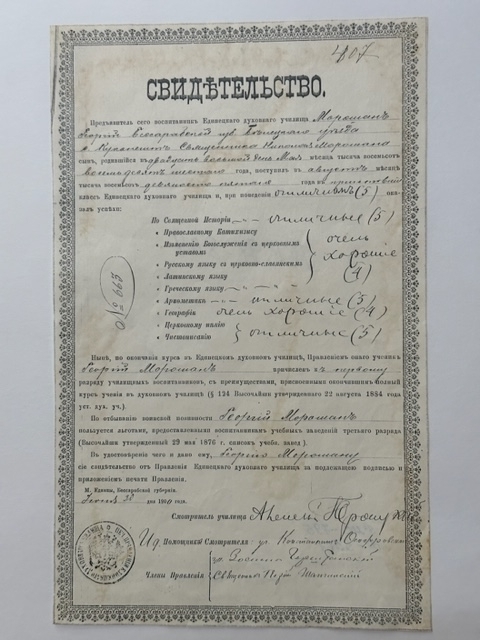 407
СВИДѢТЕЛЬСТВО.
Предъявитель сего воспитанникъ Единецкаго духовнаго училища Морошанъ
Георгій Бессарабской губ. уѣзда
с. Священника Морошана
сынъ, родившійся въ день Мая мѣсяца тысяча восемьсотъ
восемьдесятъ шестого года, поступилъ въ августѣ мѣсяцѣ
тысяча восемьсотъ девяносто пятаго года въ
классъ Единецкаго духовнаго училища и, при поведеніи отличномъ (5) ока-
залъ успѣхи:
По Священной Исторіи отличные (5)
" Православному Катихизису
" Изъясненію Богослуженія съ церковнымъ
уставомъ
очень
" Русскому языку съ церковно-славянскимъ
хорошіе
" Латинскому языку
(4)
" Греческому языку
" Ариѳметикѣ отличные (5)
" Географіи очень хорошіе (4)
" Церковному пѣнію
" Чистописанію
отличные (5)
№ 663
Нынѣ, по окончаніи курса въ Единецкомъ духовномъ училищѣ, Правленіемъ онаго училища
Георгій Морошанъ причисленъ къ первому
разряду училищныхъ воспитанниковъ, съ преимуществами, присвоенными окончившимъ полный
курсъ ученія въ духовномъ училищѣ (§ 124 Высочайше утвержденнаго 22 августа 1884 года
уст. дух. уч.)
По отбыванію воинской повинности Георгій Морошанъ
пользуется льготами, предоставленными воспитанникамъ учебныхъ заведеній третьяго разряда
(Высочайше утвержденный 29 мая 1876 г. списокъ учебн. завод.)
Въ удостовѣреніе чего и дано ему, Георгію Морошану
сіе свидѣтельство отъ Правленія Единецкаго духовнаго училища за надлежащею подписью и
приложеніемъ печати Правленія.
М. Единцы, Бессарабской губерніи.
дня 190
Смотритель училища
И.д. Помощника Смотрителя
Члены Правленія
Священникъ